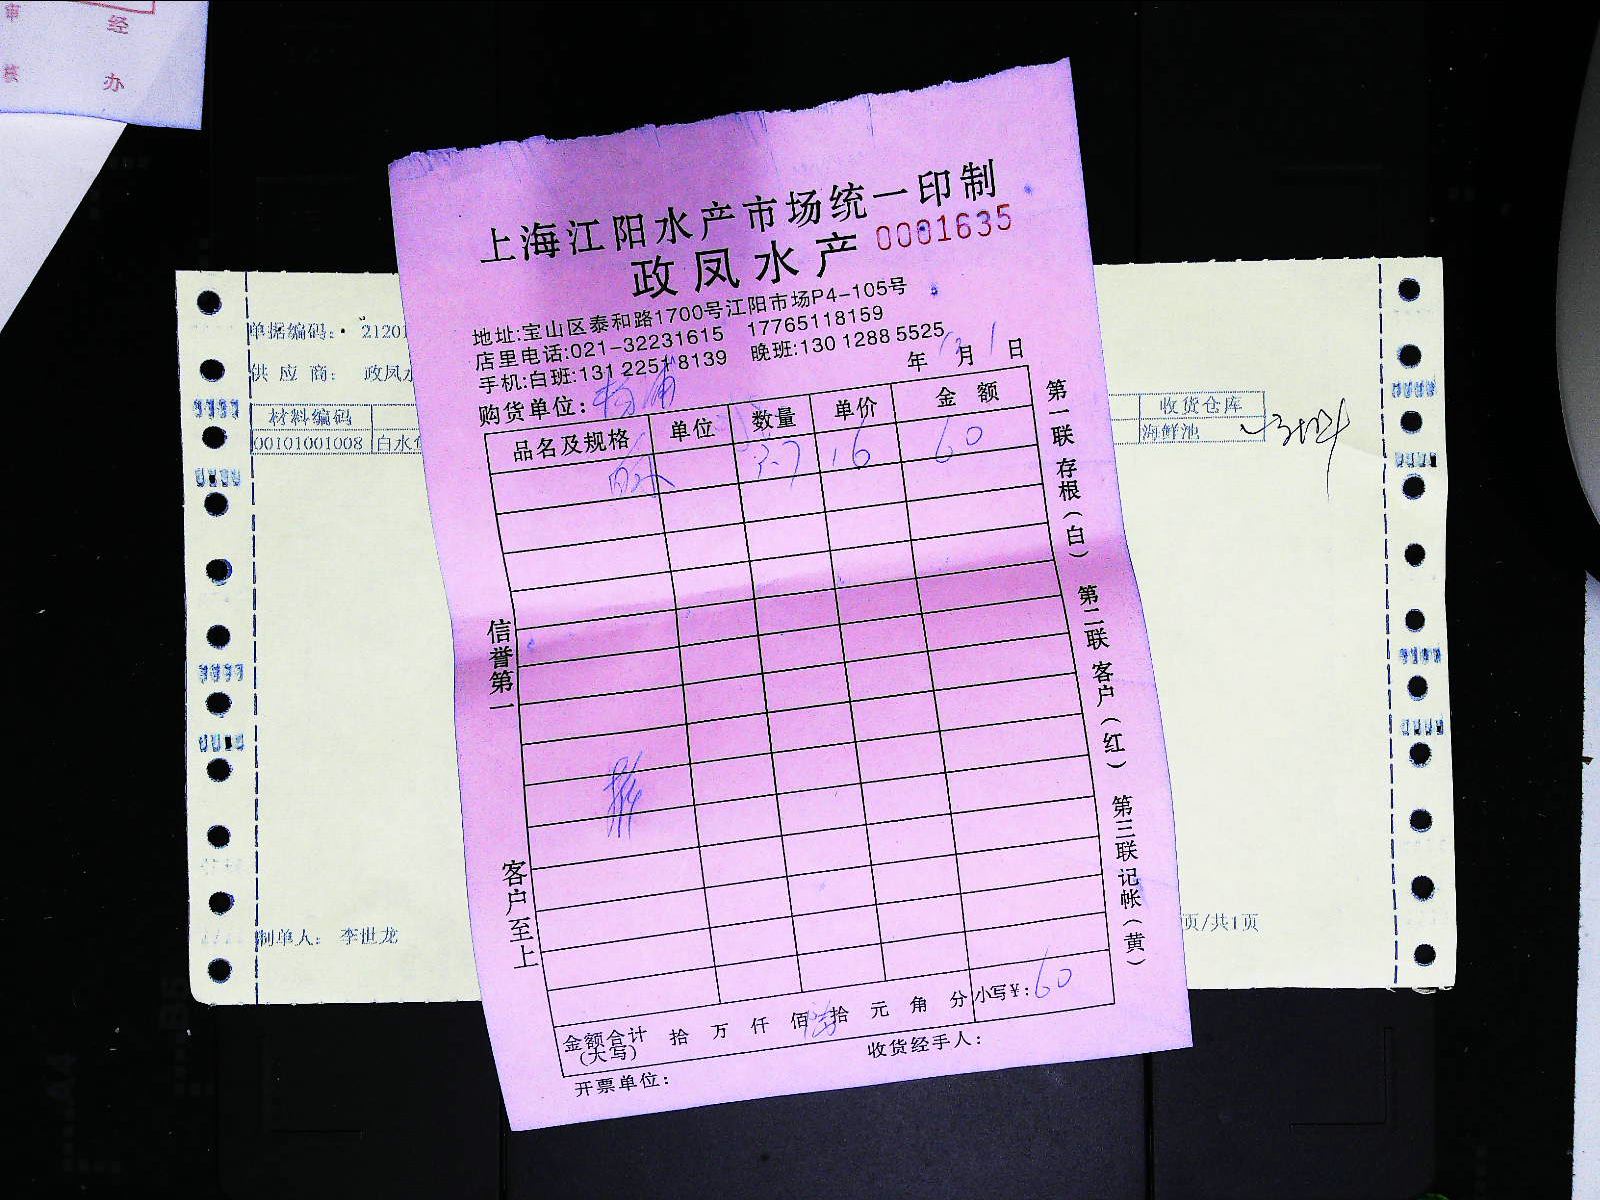 审 经
核 办
上海江阳水产市场统一印制
政凤水产 0001635
地址:宝山区泰和路1700号江阳市场P4-105号
店里电话:021-32231615 17765118159
手机:白班:131 2251 8139 晚班:130 1288 5525
年 12 月 1 日
购货单位: 杨浦
品名及规格 单位 数量 单价 金额
白水 3.7 16 60
信誉第一
客户至上
第一联 存根(白) 第二联 客户(红) 第三联 记帐(黄)
金额合计(大写) 拾 万 仟 佰 陆拾 元 角 分 小写¥: 60
收货经手人:
开票单位:
单据编码: 21201
供应商: 政凤水
材料编码 收货仓库
00101001008 白水 海鲜池
制单人: 李世龙
页/共1页